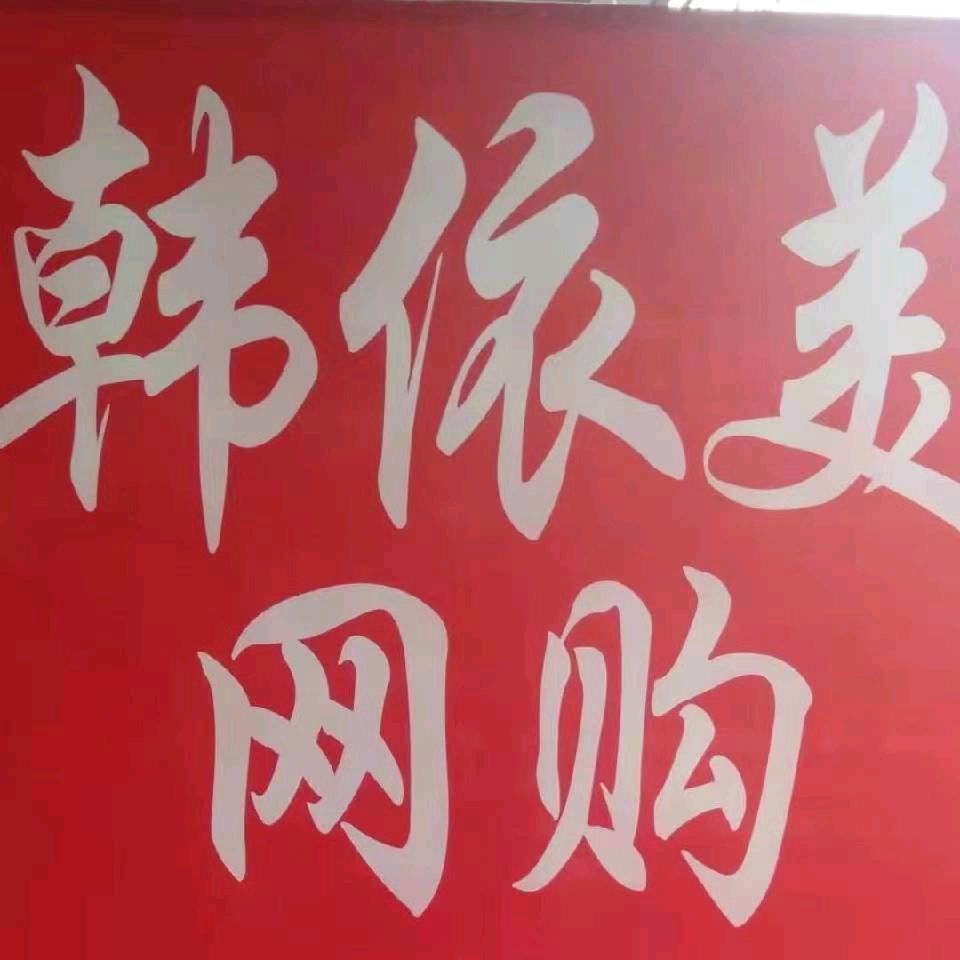 韩依美
网购